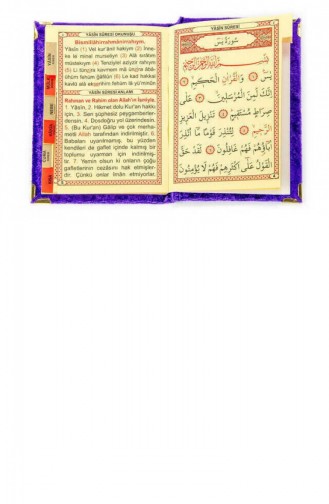 YÂSİN SÛRESİ OKUNUŞU
Bismillâhirrahmânirrahıym.
Yâsîn (1) Vel kur'ânil hakiym (2) İnne-
ke le minel murseliyn (3) Alâ sırâtım
müstekıym (4) Tenziylel aziyzir rahıym
(5) Li tünzira kavmem mâ ünzira âbâ-
ühüm fehüm ğâfilûn (6) Le kad hakkal
kavlü alâ ekserihim fehüm lâ yü'minûn
YÂSİN SÛRESİ ANLAMI
Rahman ve Rahim olan Allah'ın İsmiyle.
1. Yâsîn, 2. Hikmet dolu Kur'an hakkı
için, 3. Sen şüphesiz peygamberler-
densin. 4. Dosdoğru yol üzerindesin.
5. (Bu Kur'an) Galip ve çok merha-
metli Allah tarafından indirilmiştir. 6.
Babaları uyarılmamış, bu yüzden
kendileri de gaflet içinde kalmış bir
toplumu uyarman için indirilmiş-
tir. 7. Yemin olsun ki onların çoğu
gafletlerinin cezâsını hak etmişler-
dir. Çünkü onlar îmân etmiyorlar.
YÂSİN SÛRESİ
سُورَةُ يٰسٓ
بِسْمِ اللّٰهِ الرَّحْمٰنِ الرَّحِيمِ
يٰسٓ ﴿١﴾ وَالْقُرْاٰنِ الْحَكِيمِ ﴿٢﴾
اِنَّكَ لَمِنَ الْمُرْسَلِينَ ﴿٣﴾ عَلٰى
صِرَاطٍ مُسْتَقِيمٍ ﴿٤﴾ تَنْزِيلَ الْعَزِيزِ
الرَّحِيمِ ﴿٥﴾ لِتُنْذِرَ قَوْمًا مَٓا اُنْذِرَ
اٰبَٓاؤُهُمْ فَهُمْ غَافِلُونَ ﴿٦﴾ لَقَدْ حَقَّ
الْقَوْلُ عَلٰٓى اَكْثَرِهِمْ فَهُمْ لَا يُؤْمِنُونَ